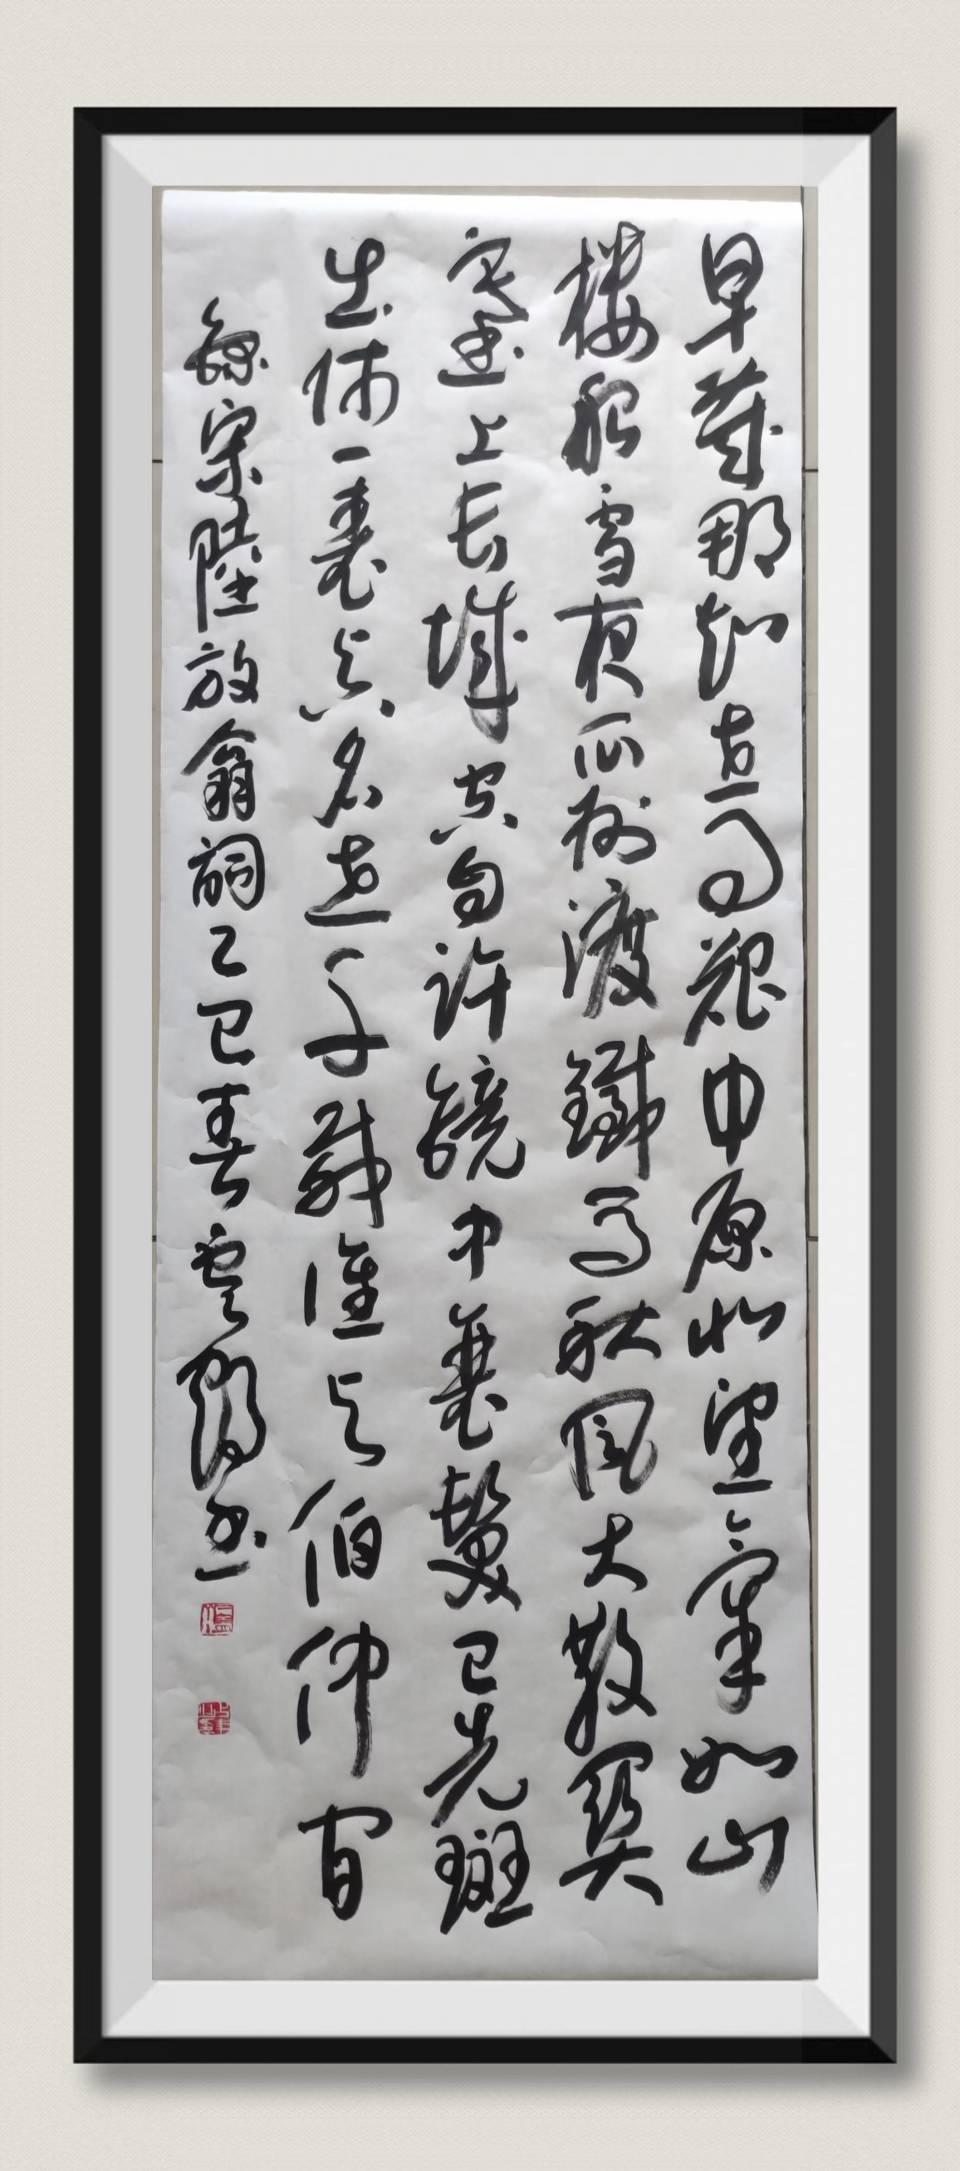 早歲那知世事艱中原北望氣如山
樓船雪夜瓜洲渡鐵馬秋風大散關
塞上長城空自許鏡中衰鬢已先斑
出師一表真名世千載誰与伯仲間
錄宋陸放翁詞乙巳春雲鶴書